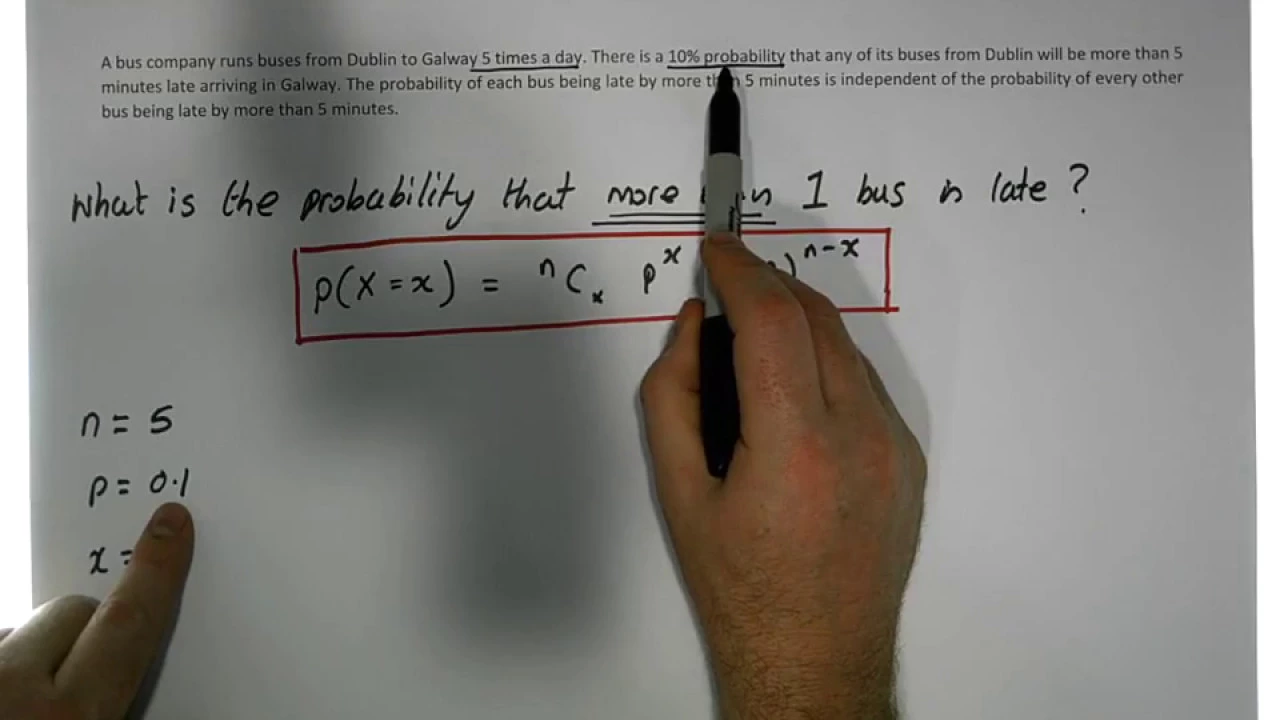 A bus company runs buses from Dublin to Galway 5 times a day. There is a 10% probability that any of its buses from Dublin will be more than 5
minutes late arriving in Galway. The probability of each bus being late by more than 5 minutes is independent of the probability of every other
bus being late by more than 5 minutes.
What is the probability that more 1 bus is late ?
p(X = x) = nCx p^x )^n-x
n = 5
p = 0.1
x =